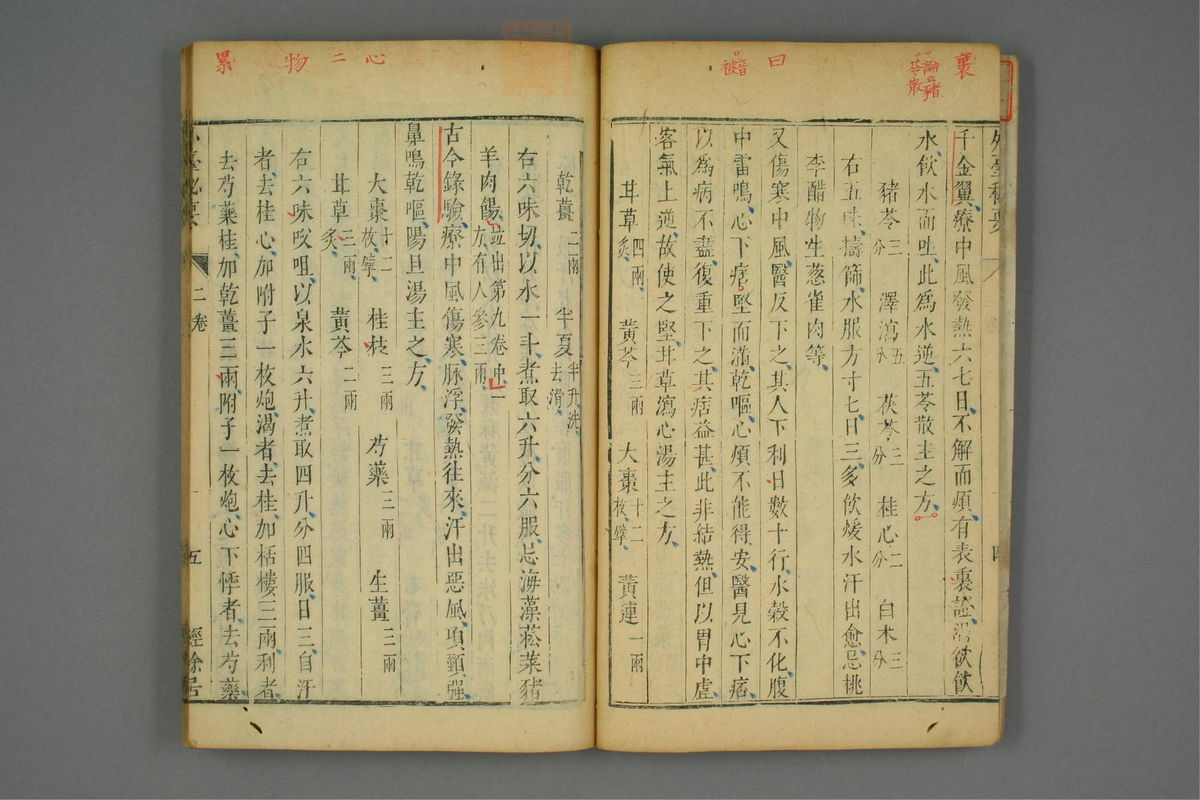 裏
論云豬
苓散
曰
音
被
心二物累
外臺秘要
四
千金翼療中風發熱六七日不解而煩有表裏證渴欲飲
水飲水而吐此為水逆五苓散主之方
豬苓三分 澤瀉五分 茯苓三分 桂心二分 白朮三分
右五味擣篩水服方寸匕日三多飲煖水汗出愈忌桃
李醋物生葱雀肉等
又傷寒中風醫反下之其人下利日數十行水穀不化腹
中雷鳴心下痞堅而滿乾嘔心煩不能得安醫見心下痞
以為病不盡復重下之其痞益甚此非結熱但以胃中虛
客氣上逆故使之堅甘草瀉心湯主之方
甘草四兩炙 黃芩三兩 大棗十二枚擘 黃連一兩
乾薑二兩 半夏半升洗去滑
右六味切以水一斗煮取六升分六服忌海藻菘菜豬
羊肉餳並出第九卷中一方有人參三兩
古今錄驗療中風傷寒脉浮發熱往來汗出惡風項頸強
鼻鳴乾嘔陽旦湯主之方
大棗十二枚擘 桂枝三兩 芍藥三兩 生薑三兩
甘草三兩炙 黃芩二兩
右六味㕮咀以泉水六升煮取四升分四服日三自汗
者去桂心加附子一枚炮渴者去桂加栝樓三兩利者
去芍藥桂加乾薑三兩附子一枚炮心下悸者去芍藥
外臺秘要
二卷
五
經餘居